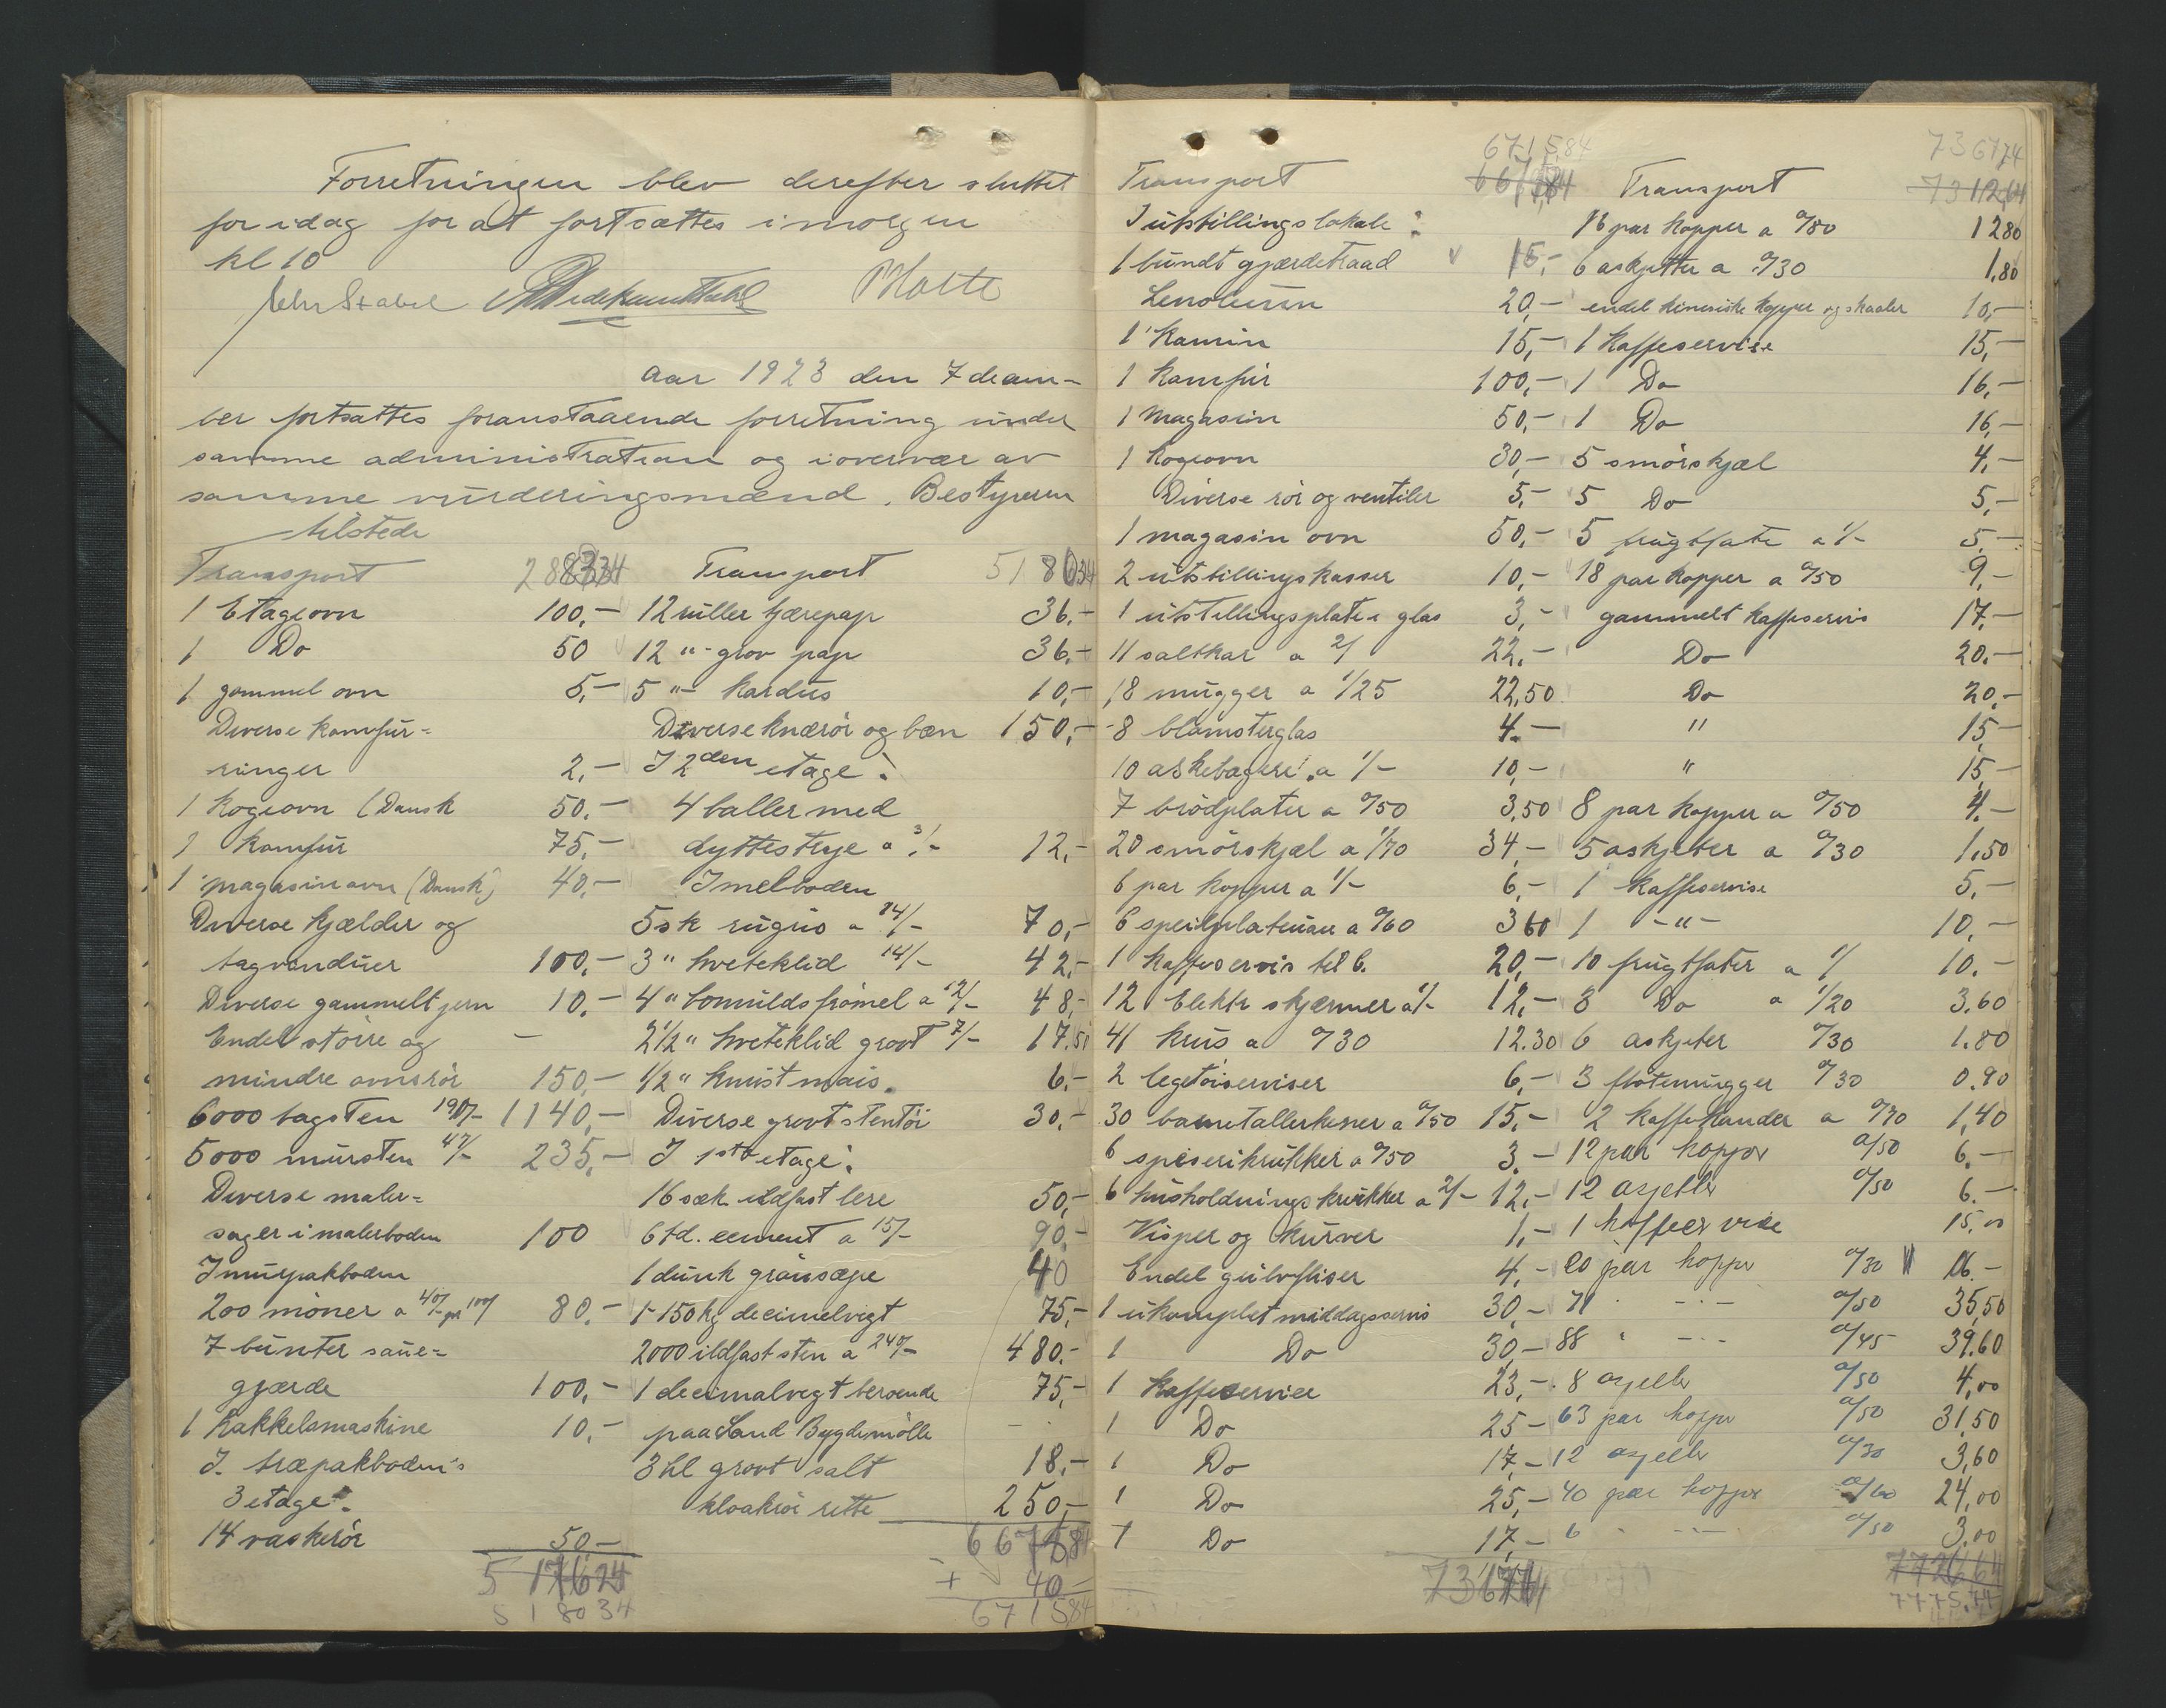 Forretningen blev derefter sluttet
for idag for at fortsættes i morgen
kl 10
Chr Stabel
PHolte
Aar 1923 den 7 decem-
ber fortsattes foranstaaende forretning under
samme administration og i overvær av
samme vurderingsmænd. Bestyreren
tilstede
Transport
1 Etageovn 100,-
1 Do 50
1 gammel ovn 5,-
Diverse komfur-
ringer 2,-
1 Kogeovn (Dansk 50.-
1 Komfur 75,-
1 magasinovn (Dansk) 40,-
Diverse kjælder og
tagvinduer 100,-
Diverse gammelt jern 10,-
Endel större og -
mindre ovnsrör 150,-
6000 tagsten 190/- 1140,-
5000 mursten 47/- 235,-
Diverse maler-
sager i malerboden 100
I murpakboden
200 möner a 40/- pr 100/ 80.-
7 bunter saue-
gjærde 100,-
1 Hakkelsmaskine 10,-
I træpakboden's
3 etage:
14 vaskerör 50,-
517624
518034
Transport 518034
12 ruller tjærepap 36,-
12 "- grov pap 36,-
5 "- Kardus 10,-
Diverse knærör og bæn 150,-
I 2den etage:
4 baller med
dyttestrye a 3/- 12,-
I melboden
5 sk rugris a 14/- 70,-
3 " hveteklid 14/- 42,-
4 " bomuldsfrömel a 12/- 48,-
2 1/2 " hveteklid grovt 7/- 17.50
1/2 " knust mais. 6,-
Diverse grovt stentöi 30,-
I 1ste etage:
16 sæk ildfast lere 50,-
6 td. cement a 15/- 90,-
1 dunk grönsæpe 40
1-150 kg decimelvegt 75,-
2000 ildfast sten a 240/- 480.-
1 decimalvegt beroende 75,-
paa Land Bygdemölle
3 hl grovt salt 18,-
kloakrör rette 250,-
667584
+ 40-
671584
671584
Transport
I utstillingslokale:
1 bundt gjærdetraad 15,-
Lenoleum 20,-
1 Kamin 15,-
1 Komfur 100,-
1 Magasin 50,-
1 Kogeovn 30,-
Diverse rör og ventiler 5,-
1 magasin ovn 50,-
2 utstillingskasser 10,-
1 utstillingsplate i glas 3,-
11 saltkar a 2/ 22,-
18 mugger a 1/25 22,50
8 blomsterglas 4.-
10 askebægere a 1/- 10,-
7 brödplater a 0/50 3,50
20 smörskjæl a 1/70 34,-
6 par kopper a 1/- 6,-
6 speilplateuan a 0/60 360
1 Kaffeservis til 6. 20,-
12 Elektr skjærmer a 1/- 12,-
41 krus a 0/30 12.30
2 legetöiserviser 6,-
30 barnetallerkener a 0/50 15,-
6 speserikrukker a 0/50 3.-
6 husholdningskrukker a 2/- 12,-
Visper og kurver 1,-
Endel gulvfliser 4,-
1 ukomplet middagsservis 30,-
1 Do 30,-
1 Kaffeservice 23,-
1 Do 25-
1 Do 17,-
1 Do 25,-
1 Do 17,-
736774
Transport
16 par kopper a 0/80 1280
6 askjetter a 0/30 1,80
endel kinesiske kopper og skaaler 10,-
1 Kaffeservise 15,-
1 Do 16,-
1 Do 16,-
5 smörskjæl 4,-
5 Do 5,-
5 frugtfate a 1/- 5,-
18 par kopper a 0/50 9,-
gammelt kaffeservis 17,-
Do 20.-
Do 20,-
" 15,-
" 15,-
8 par kopper a 0/50 4.-
5 askjeter a 0/30 1,50
1 Kaffeservise 5,-
1 -"- 10,-
10 frugtfater a 1/ 10.-
3 Do a 1/20 3.60
6 askjeter 0/30 1.80
3 flötemugger 0/30 0.90
2 kaffekander a 0/70 1,40
12 par kopper 0/50 6.-
12 asjetter 0/50 6.-
1 kaffeservise 15,00
20 par kopper 0/30
71 " -"- 0/50 35,50
88 " -"- 0/45 39.60
8 asjetter 0/50 4,00
63 par kopper 0/50 31,50
12 asjetter 0/30 3,60
40 par kopper 0/60 24,00
6 " -"- 0/50 3,00
772664
7775.74